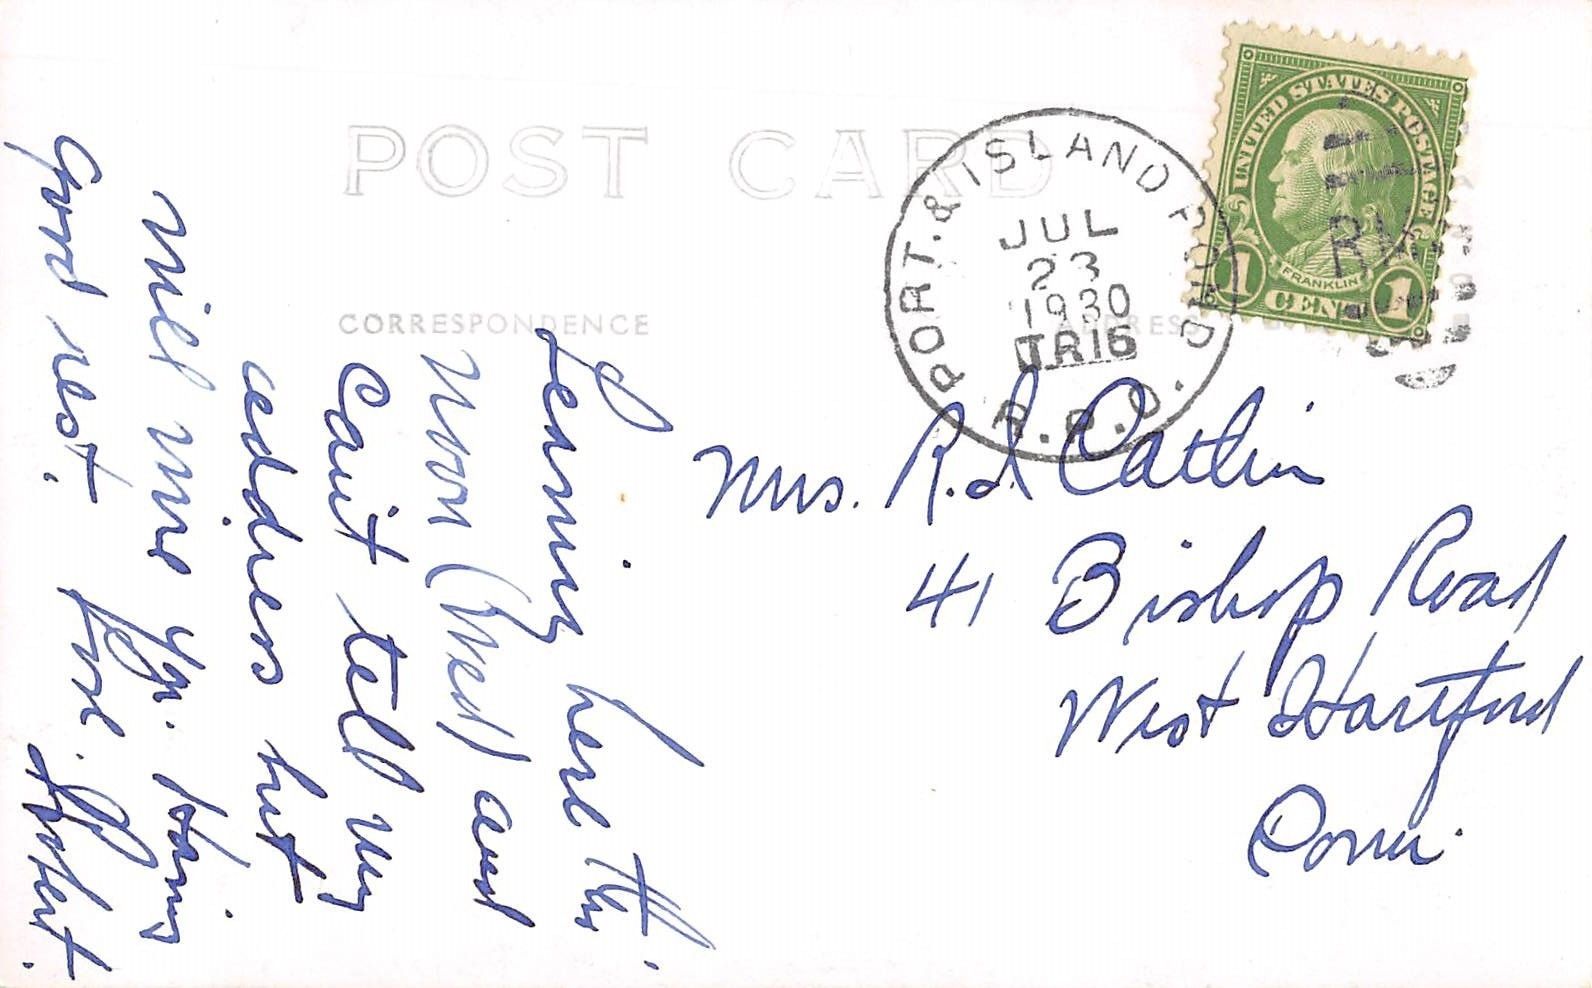 POST CARD
CORRESPONDENCE
ADDRESS
PORT. & ISLAND POND
JUL
23
1930
TR16
R.P.O.
UNITED STATES POSTAGE
FRANKLIN
1 CENT 1
Mrs. R. L. Catlin
41 Bishop Road
West Hartford
Conn.
Leaving here this
noon (Wed) and
Can't tell my
address but
will wire you. Having
good rest.
Love. Robert.